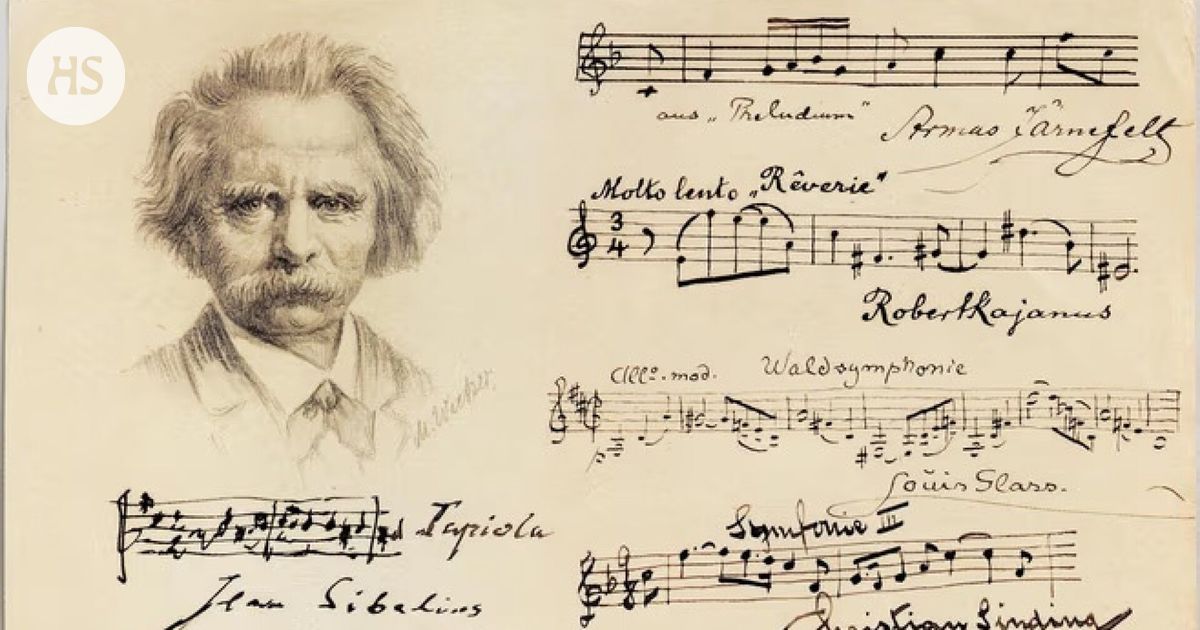 HS
aus „Preludium"
Armas Järnefelt
Molto lento „Rêverie"
3
4
Robert Kajanus
Allo. mod. Waldsymphonie
Louis Glass.
Tapiola
Jean Sibelius
Symfonie III
Christian Sinding